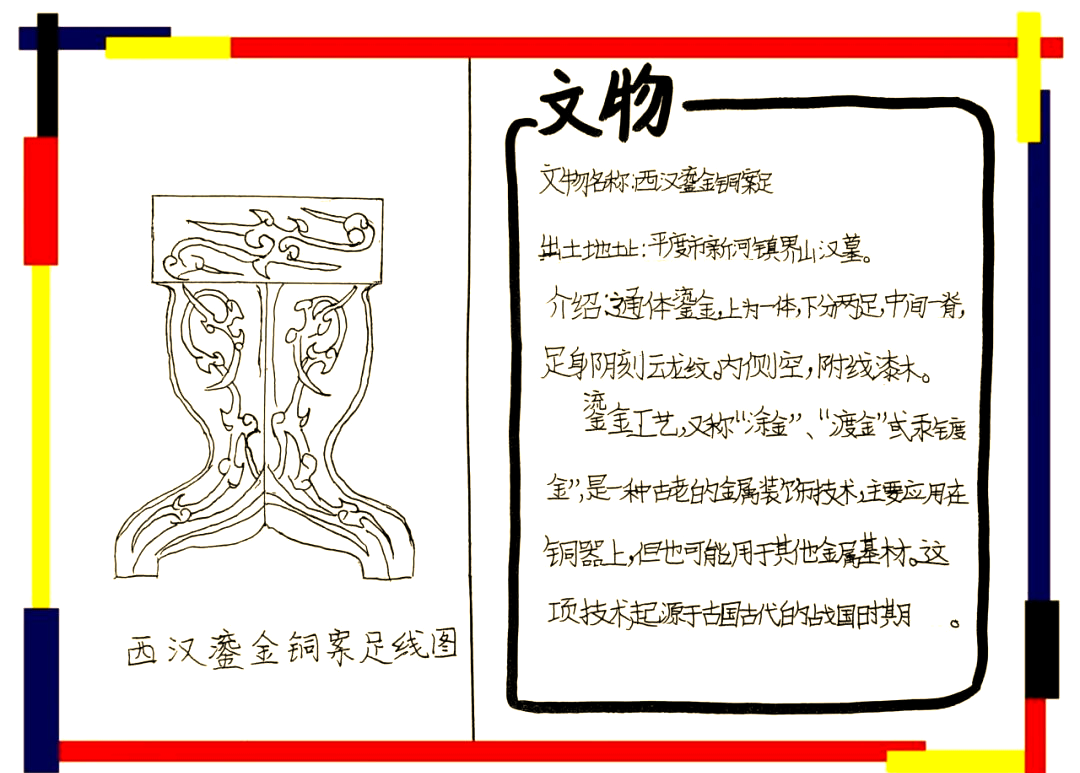 文物
文物名称:西汉鎏金铜案足
出土地址:平度市新河镇界山汉墓。
介绍:通体鎏金,上为一体,下分两足,中间一脊,
足身阴刻云龙纹。内侧空,附线漆木。
流
鎏金工艺,又称“涂金”、“渡金”或汞镀
金”,是一种古老的金属装饰技术,主要应用在
铜器上,但也可能用于其他金属基材。这
项技术起源于古国古代的战国时期。
西汉鎏金铜案足线图